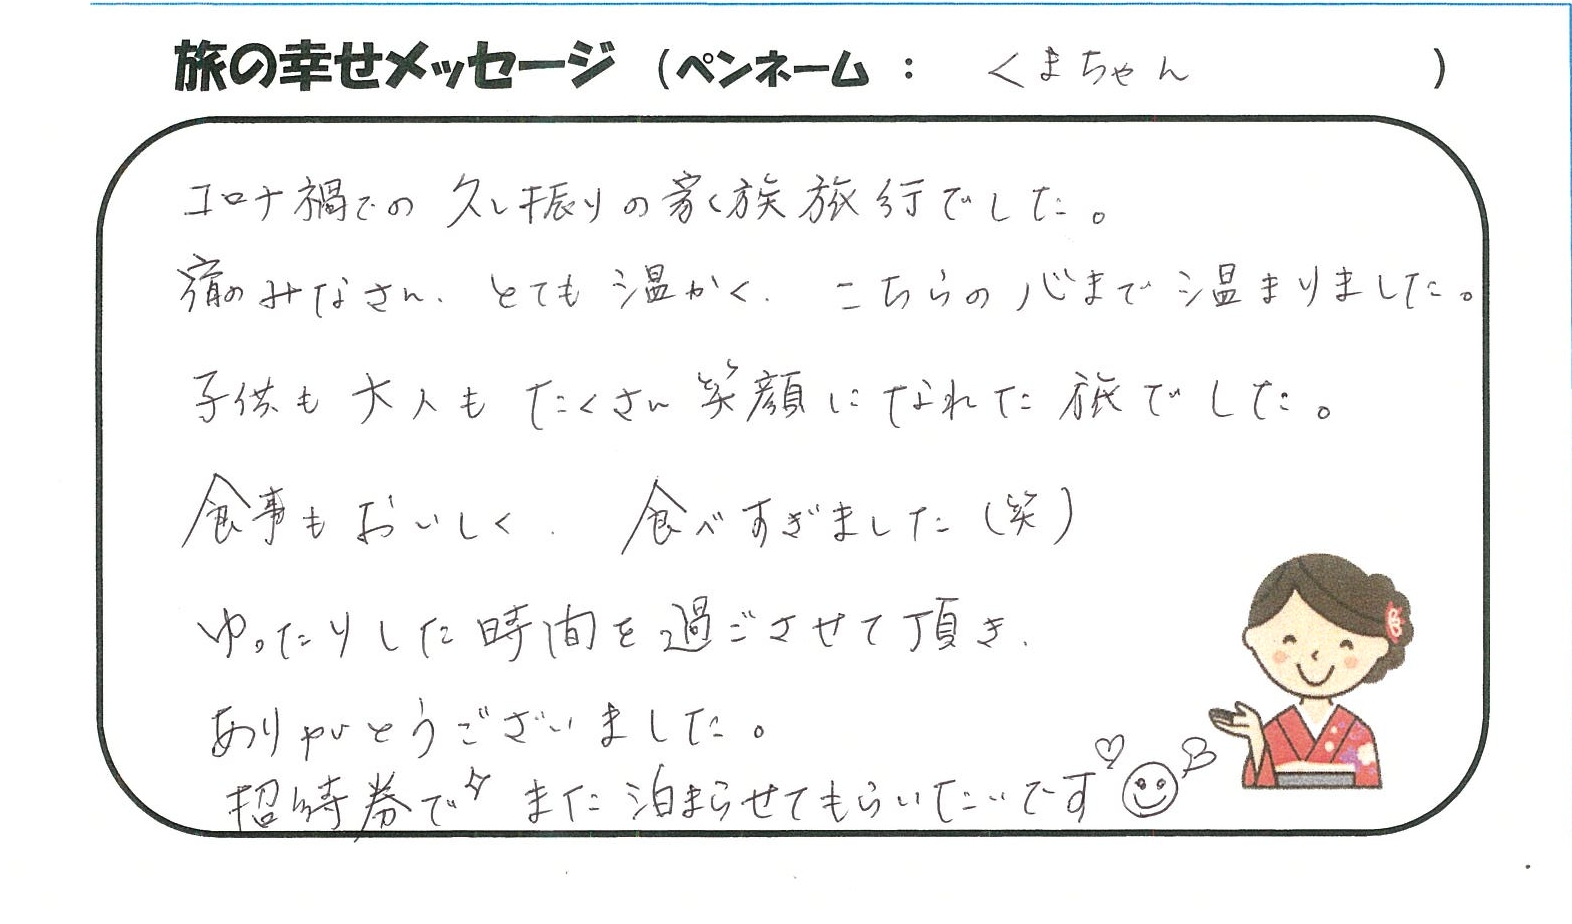 旅の幸せメッセージ （ペンネーム ： くまちゃん ）
コロナ禍での 久し振りの家族旅行でした。
宿のみなさん、とても温かく、こちらの心まで温まりました。
子供も大人も たくさん笑顔になれた旅でした。
食事もおいしく、食べすぎました（笑）
ゆったりした時間を過ごさせて頂き、
ありがとうございました。
招待券で☆ また泊まらせてもらいたいです♡